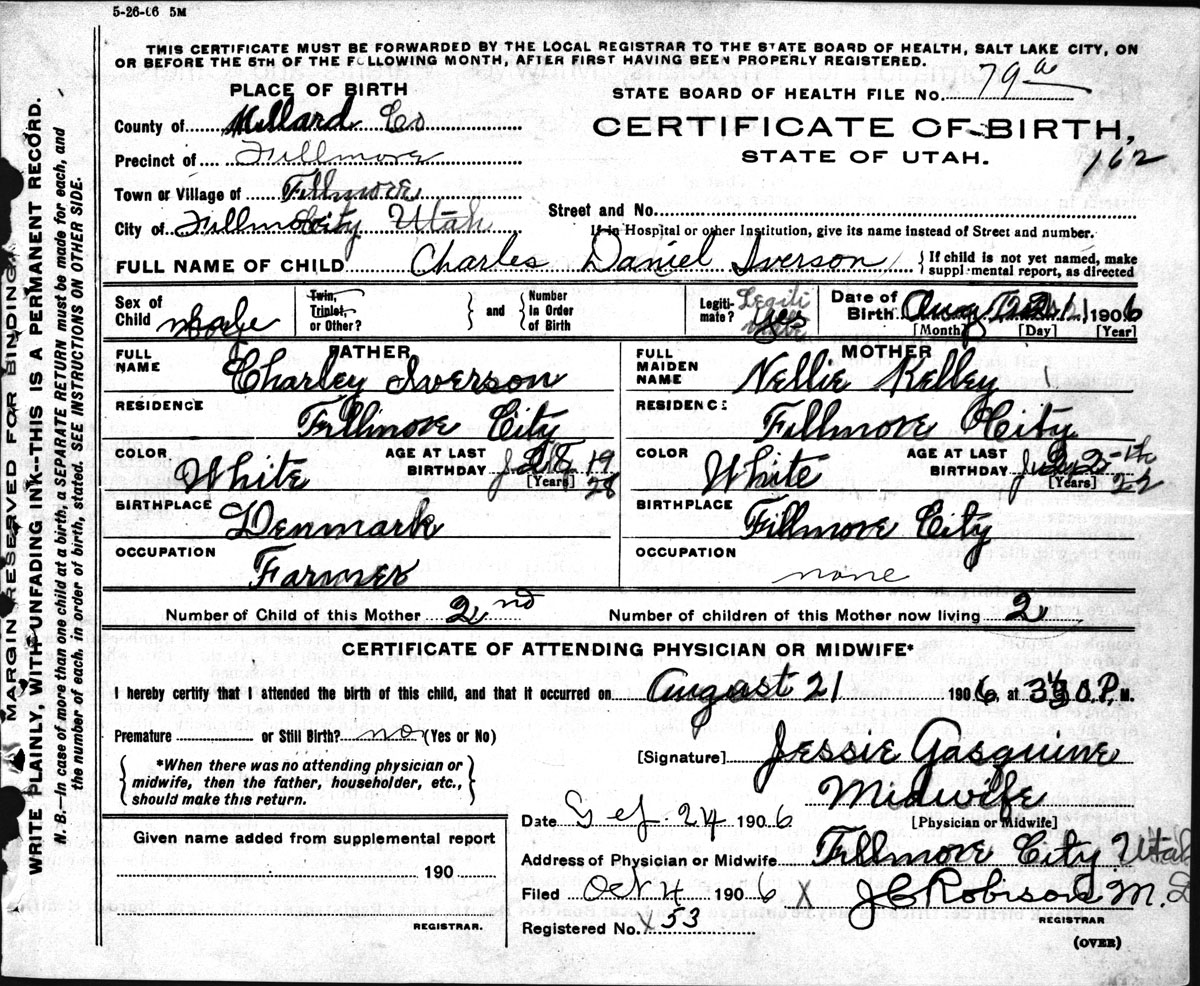 5-26-06 5M
THIS CERTIFICATE MUST BE FORWARDED BY THE LOCAL REGISTRAR TO THE STATE BOARD OF HEALTH, SALT LAKE CITY, ON
OR BEFORE THE 5TH OF THE FOLLOWING MONTH, AFTER FIRST HAVING BEEN PROPERLY REGISTERED.
PLACE OF BIRTH
STATE BOARD OF HEALTH FILE No. 79a
County of Millard Co
CERTIFICATE OF BIRTH,
Precinct of Fillmore
STATE OF UTAH.
162
Town or Village of Fillmore
City of Fillmore City Utah
Street and No.
If in Hospital or other Institution, give its name instead of Street and number.
FULL NAME OF CHILD Charles Daniel Iverson
If child is not yet named, make
supplemental report, as directed
Sex of Child Male
Twin, Triplet, or Other?
and
Number in Order of Birth
Legiti-mate? yes
Date of Birth Aug 21 1906
[Month] [Day] [Year]
FATHER
FULL NAME Charley Iverson
RESIDENCE Fillmore City
COLOR White
AGE AT LAST BIRTHDAY 28
[Years]
BIRTHPLACE Denmark
OCCUPATION Farmer
MOTHER
FULL MAIDEN NAME Nellie Kelley
RESIDENCE Fillmore City
COLOR White
AGE AT LAST BIRTHDAY 22
[Years]
BIRTHPLACE Fillmore City
OCCUPATION none
Number of Child of this Mother 2nd
Number of children of this Mother now living 2
CERTIFICATE OF ATTENDING PHYSICIAN OR MIDWIFE*
I hereby certify that I attended the birth of this child, and that it occurred on August 21 1906, at 3 30 P, M.
Premature or Still Birth? no (Yes or No)
[Signature] Jessie Gasquine
*When there was no attending physician or
midwife, then the father, householder, etc.,
should make this return.
Midwife
[Physician or Midwife]
Date 24 1906
Given name added from supplemental report
190
REGISTRAR.
Address of Physician or Midwife Fillmore City Utah
Filed Oct 4 1906 X J C Robison M. D
REGISTRAR
Registered No. X 53
(OVER)
MARGIN RESERVED FOR BINDING
WRITE PLAINLY, WITH UNFADING INK--THIS IS A PERMANENT RECORD.
N. B.—In case of more than one child at a birth, a SEPARATE RETURN must be made for each, and
the number of each, in order of birth, stated. SEE INSTRUCTIONS ON OTHER SIDE.